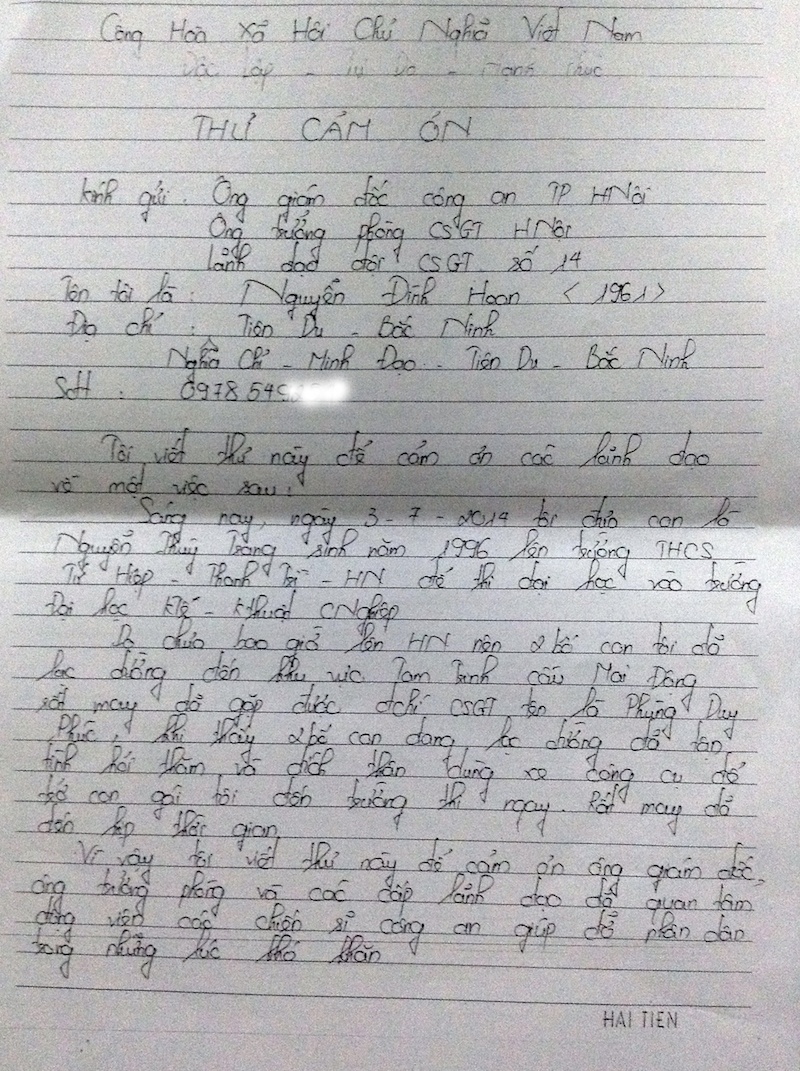 Cộng Hoà Xã Hội Chủ Nghĩa Việt Nam
Độc Lập - Tự Do - Hạnh Phúc
THƯ CẢM ƠN
Kính gửi. Ông giám đốc công an TP HNội
Ông trưởng phòng CSGT HNội
Lãnh đạo đội CSGT số 14
Tên tôi là : Nguyễn Đình Hoan < 1961>
Địa chỉ : Tiên Du - Bắc Ninh
Nghĩa Chỉ - Minh Đạo - Tiên Du - Bắc Ninh
SĐT : 0978 549
Tôi viết thư này để cảm ơn các lãnh đạo
về một việc sau:
Sáng nay, ngày 3-7-2014 tôi đưa con là
Nguyễn Thuỳ Trang sinh năm 1996 lên trường THCS
Tứ Hiệp - Thanh Trì - HN để thi đại học vào trường
Đại học KTế - Kthuật CNghiệp
Là chưa bao giờ lên HN nên 2 bố con tôi đã
lạc đường đến khu vực Tam Trinh cầu Mai Động
rất may đã gặp được đchí CSGT tên là Phùng Duy
Phúc, khi thấy 2 bố con đang lạc đường đã tận
tình hỏi thăm và đích thân dùng xe công cụ để
trở con gái tôi đến trường thi ngay. Rất may đã
đến kịp thời gian
Vì vậy tôi viết thư này để cảm ơn ông giám đốc,
ông trưởng phòng và các cấp lãnh đạo đã quan tâm
động viên các chiến sĩ công an giúp đỡ nhân dân
trong những lúc khó khăn
HAI TIEN